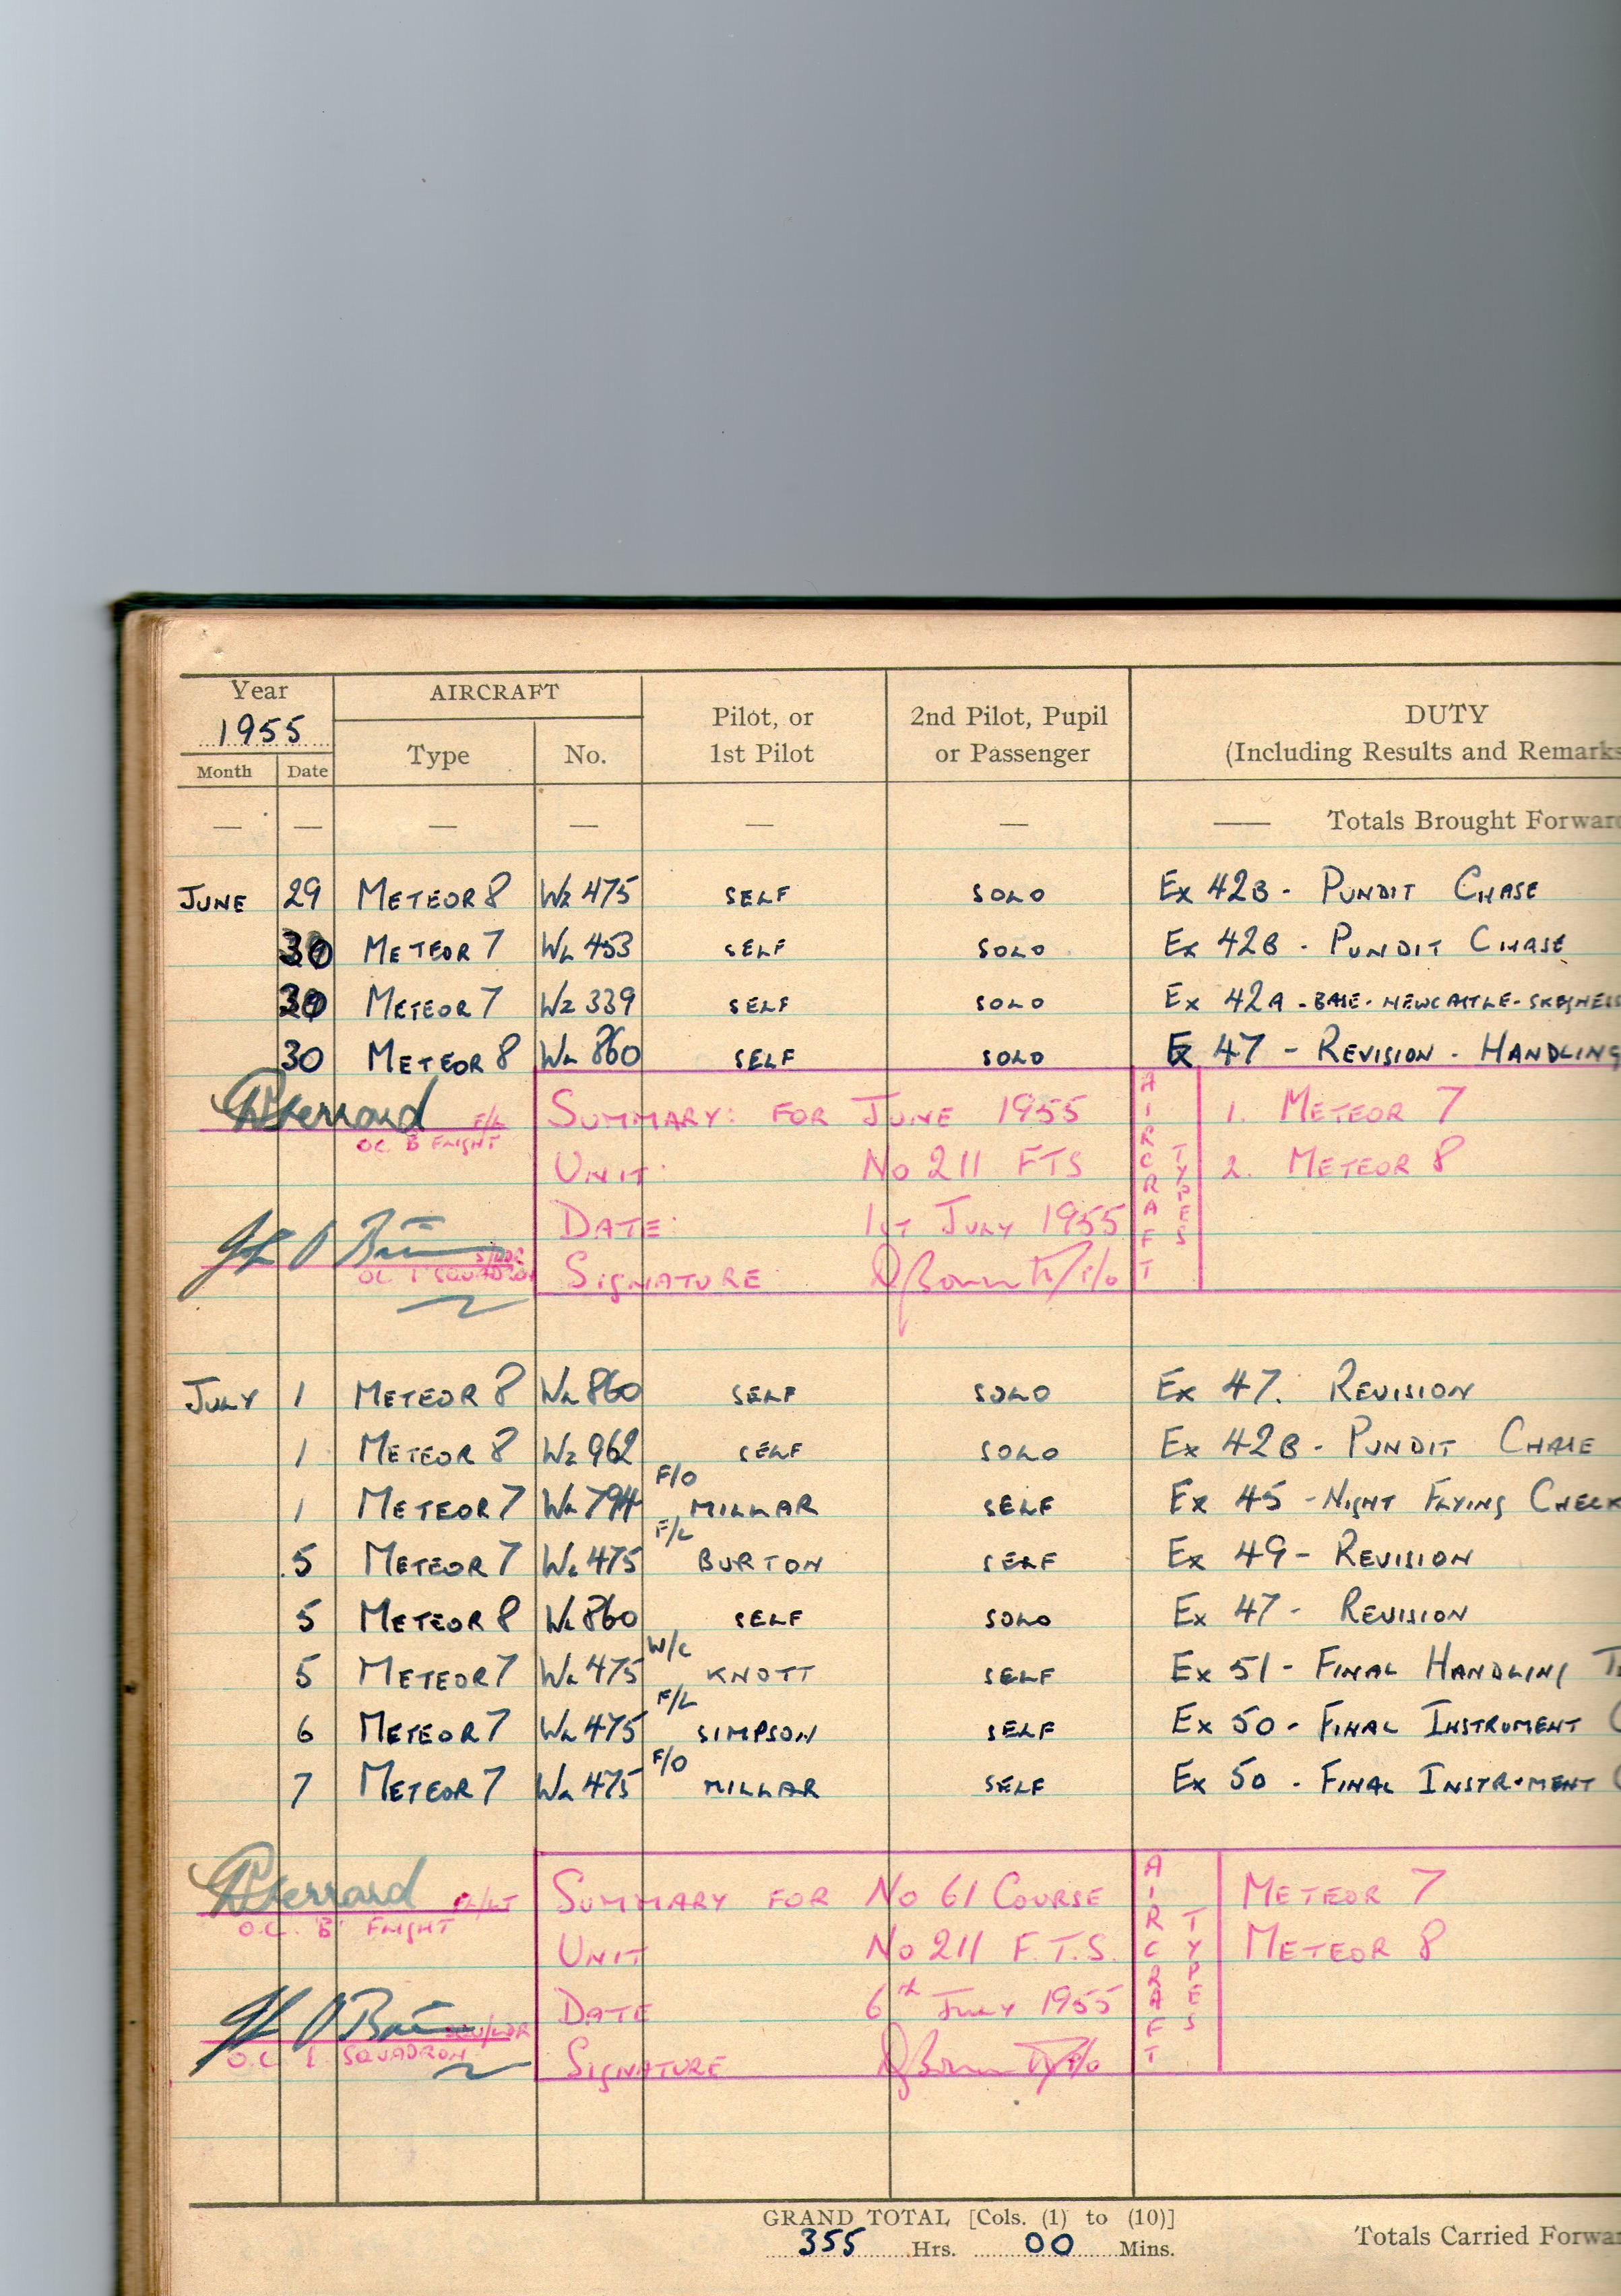 Year AIRCRAFT
1955 Pilot, or 2nd Pilot, Pupil DUTY
Month Date Type No. 1st Pilot or Passenger (Including Results and Remarks
— — — — — — — Totals Brought Forward
JUNE 29 METEOR 8 WZ 475 SELF SOLO Ex 42B - PUNDIT CHASE
30 METEOR 7 WL 453 SELF SOLO Ex 42B - PUNDIT CHASE
METEOR 7 WZ 339 SELF SOLO Ex 42A - BASE - NEWCASTLE - SKEGNESS
30 METEOR 8 WL 860 SELF SOLO Ex 47 - REVISION - HANDLING
F/L SUMMARY: FOR JUNE 1955 AIRCRAFT TYPES 1. METEOR 7
OC B FLIGHT
UNIT: No 211 FTS 2. METEOR 8
DATE: 1ST JULY 1955
S/LDR
OC 1 SQUADRON SIGNATURE
JULY 1 METEOR 8 WL 860 SELF SOLO Ex 47. REVISION
1 METEOR 8 WZ 962 SELF SOLO Ex 42B - PUNDIT CHASE
1 METEOR 7 WL 794 F/O MILLAR SELF Ex 45 - NIGHT FLYING CHECK
5 METEOR 7 WL 475 F/L BURTON SELF Ex 49 - REVISION
5 METEOR 8 WL 860 SELF SOLO Ex 47 - REVISION
5 METEOR 7 WL 475 W/C KNOTT SELF Ex 51 - FINAL HANDLING
6 METEOR 7 WL 475 F/L SIMPSON SELF Ex 50 - FINAL INSTRUMENT
7 METEOR 7 WL 475 F/O MILLAR SELF Ex 50 - FINAL INSTRUMENT
FL/LT SUMMARY FOR No 61 COURSE AIRCRAFT TYPES METEOR 7
O.C. 'B' FLIGHT
UNIT No 211 F.T.S. METEOR 8
DATE 6th JULY 1955
SQU/LDR
O.C. 1 SQUADRON SIGNATURE
GRAND TOTAL [Cols. (1) to (10)]
355 Hrs. 00 Mins. Totals Carried Forwar